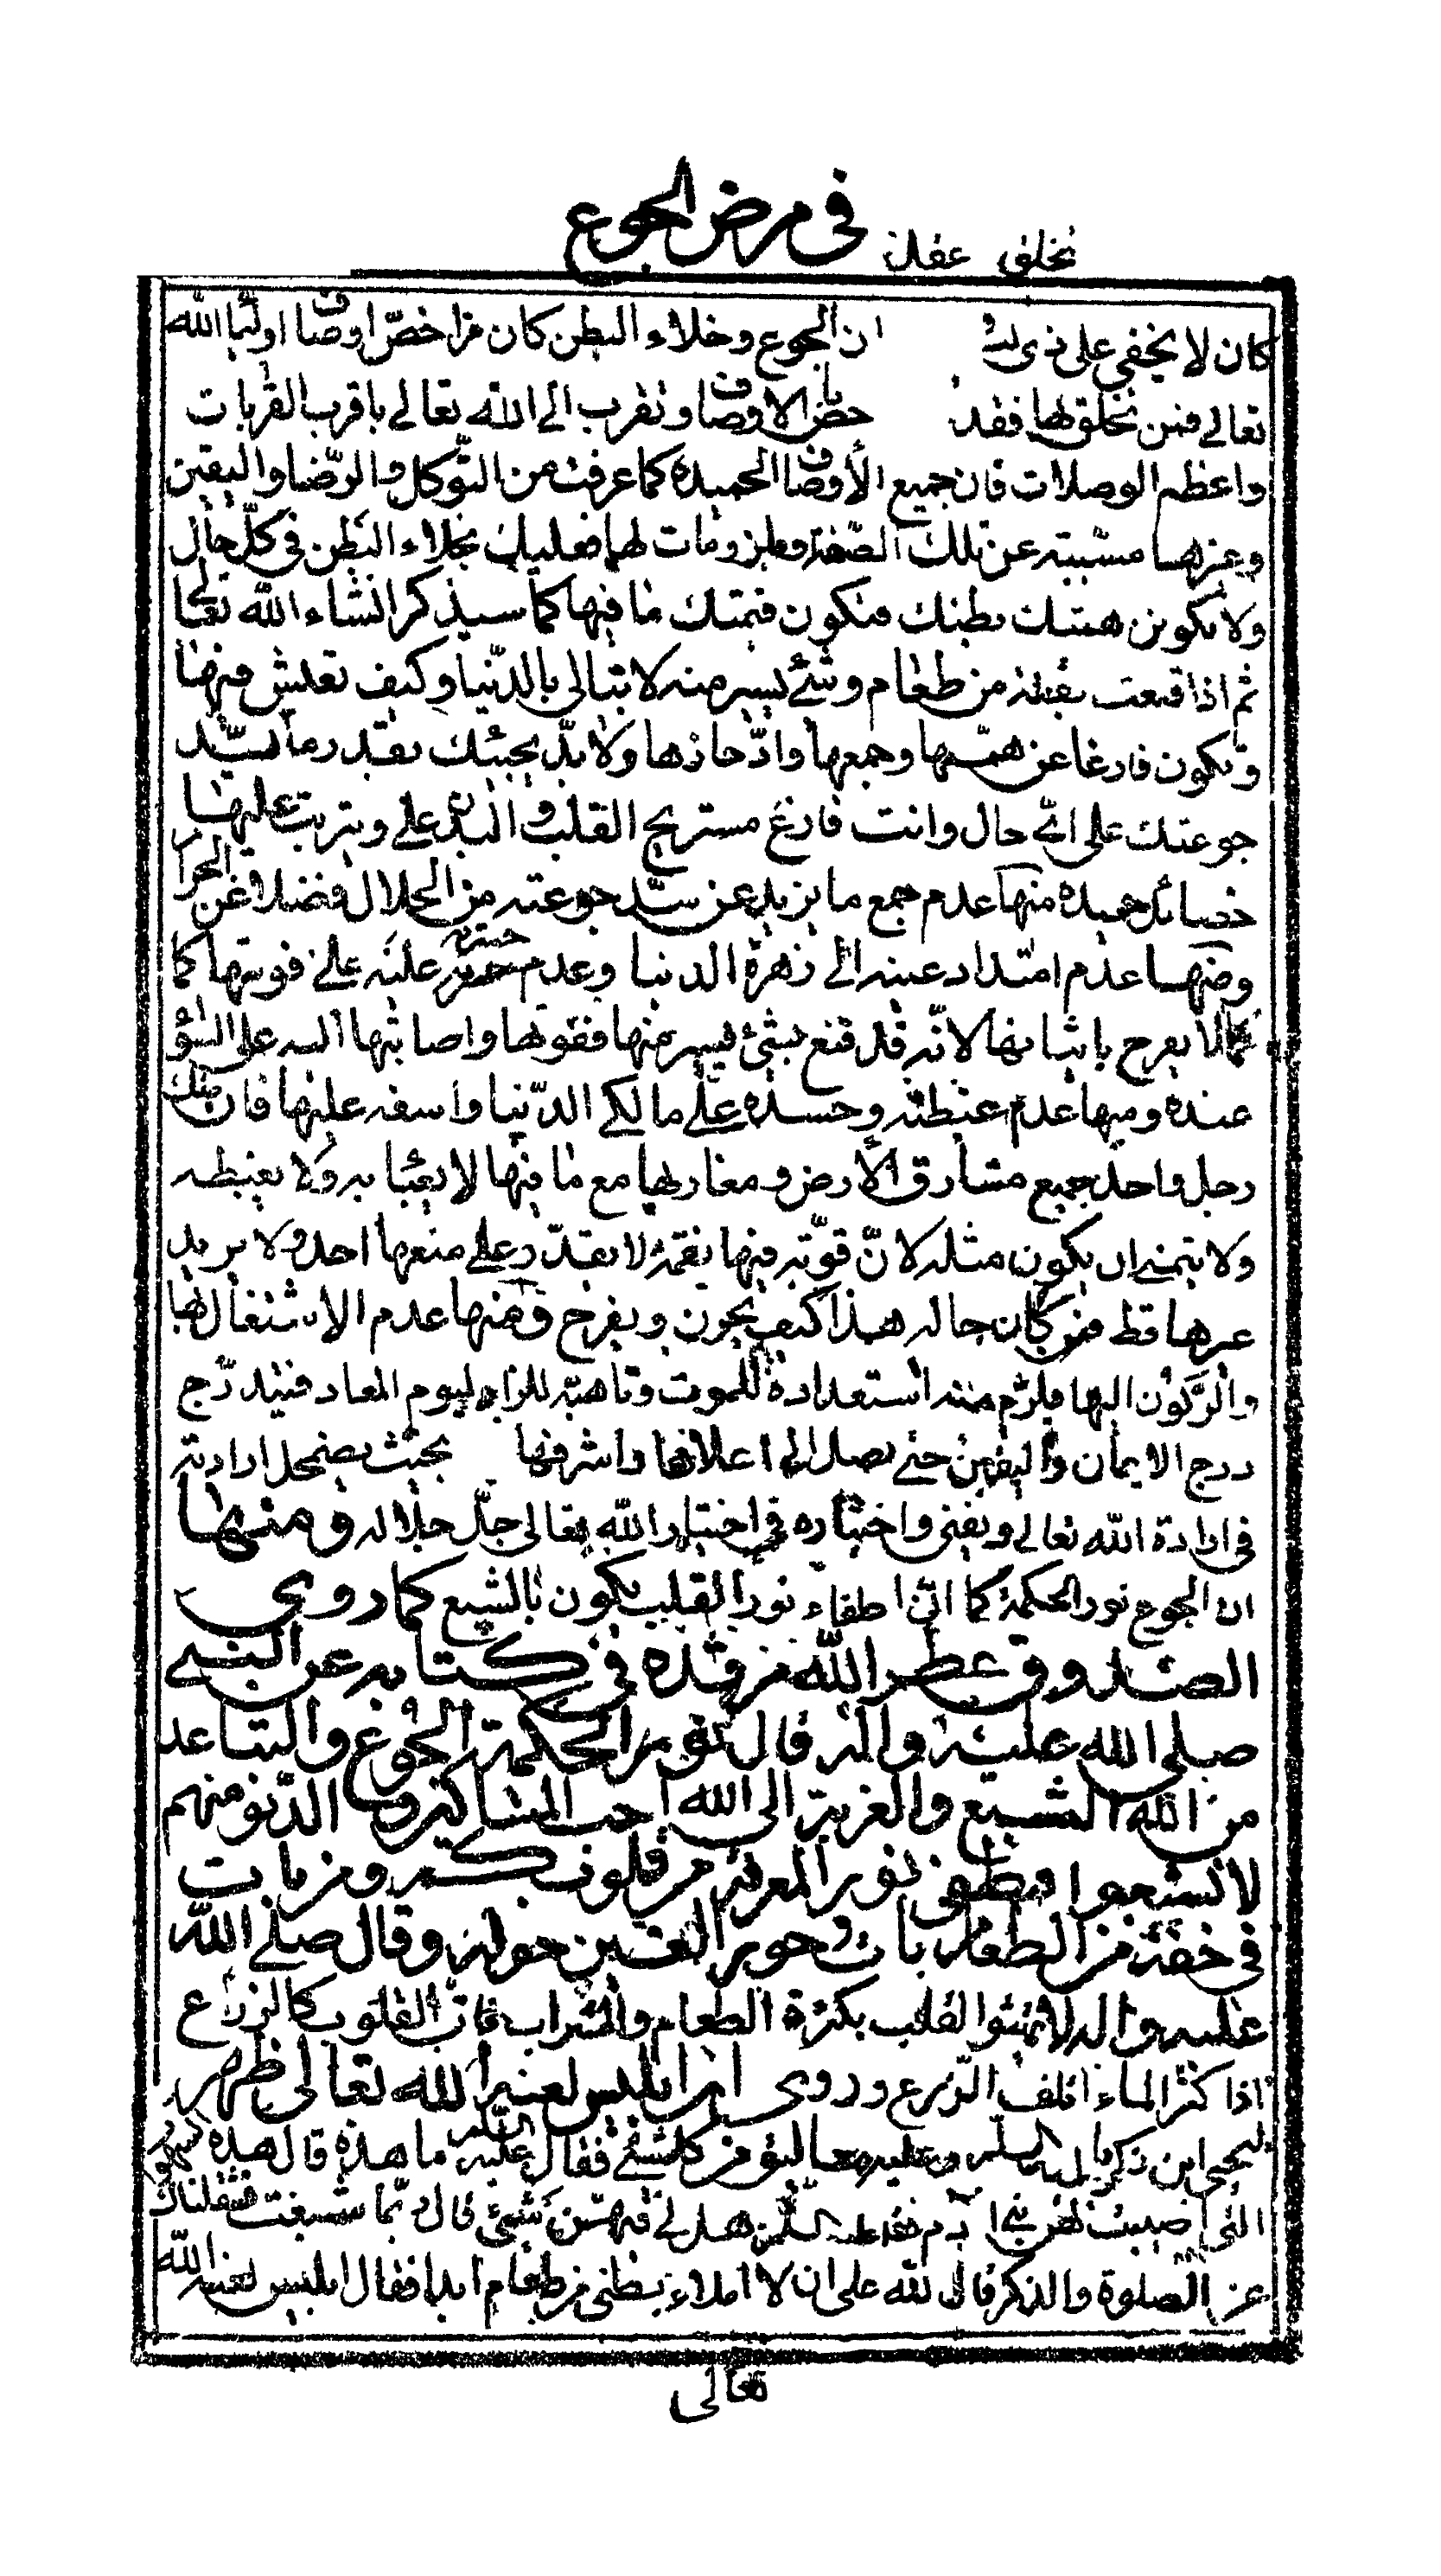 في مرض الجوع
كان لا يخفى على ذي ان الجوع وخلاء البطن كان من اخصّ اوصاف اولياء الله
تعالى فمن تخلق بها فقد الاوصاف وتقرب الى الله تعالى باقرب القربات
واعظم الوصلات فان جميع الأوصاف الحميدة كما عرفت من التوكل والرّضا واليقين
وغيرها مسببة عن تلك الصّفة وملزومات لها فعليك بخلاء البطن في كلّ حال
ولا تكونن همتك بطنك فتكون قيمتك ما فيها كما سيذكر انشاء الله تعالى
ثم اذا قنعت من طعام وشئ يسير منه لا تبالي بالدّنيا وكيف تعيش فيها
وتكون فارغا عن همّها وجمعها وادّخارها ولا بدّ يجيئك بقدر ما تسدّ
جوعتك على ايّ حال وانت فارغ مستريح القلب والبدن على ويترتب عليها
خصائل حميدة منها عدم جمع ما يزيد عن سدّ جوعته من الحلال فضلا عن الحرام
ومنها عدم امتداد عينه الى زهرة الدنيا وعدم حسرته عليه على فوتها كما
لا يفرح باتيانها لانّه قد قنع بشئ يسير منها ففوتها واصابتها اليه على السواء
عنده ومنها عدم غبطته وحسده على مالكي الدّنيا وأسفه عليها فان ملك
رجل واحد جميع مشارق الأرض ومغاربها مع ما فيها لا يعبأ به ولا يغبطه
ولا يتمنى ان يكون مثله لانّ قوّته فيها لا يقدّر على منعها احد ولا يريد
غيرها قط فمن كان حاله هذا كيف يحزن ويفرح ومنها عدم الاشتغال بها
والرّكون اليها فيلزم منه استعداده للموت وتاهبه للزاد ليوم المعاد فيتدرّج
درج الايمان واليقين حتى يصل الى اعلاها واشرفها بحيث يضمحل ارادته
في ارادة الله تعالى ويفنى واختياره في اختيار الله تعالى جلّ جلاله ومنها
ان الجوع نور الحكمة كما انّ اطفاء نور القلب يكون بالشبع كما روى
الصدوق عطر الله مرقده في كتابه عن النبي
صلى الله عليه وآله قال نور الحكمة الجوع والتباعد
من الله الشبع والقربة الى الله حب المساكين والدّنو منهم
لا تشبعوا فيطفى نور المعرفة من قلوبكم ومن بات
في خفة من الطعام بات وحور العين حوله وقال صلى الله
عليه وآله لا تميتوا القلب بكثرة الطعام والشراب فانّ القلوب كالزرع
اذا كثر الماء الزرع وروى ان ابليس لعنه الله تعالى ظهر
ليحيى ابن زكريا عليه السلم وعليه معاليق من كل شئ فقال عليه السلم ما هذه قال هذه
التي اصيب بهن بني آدم فقال عليه السلم هل لي فيهنّ شئ قال ربّما شبعت فثقلناك
عن الصلوة والذكر قال لله على ان لا املاء بطني من طعام ابدا فقال ابليس لعنه الله
تعالى